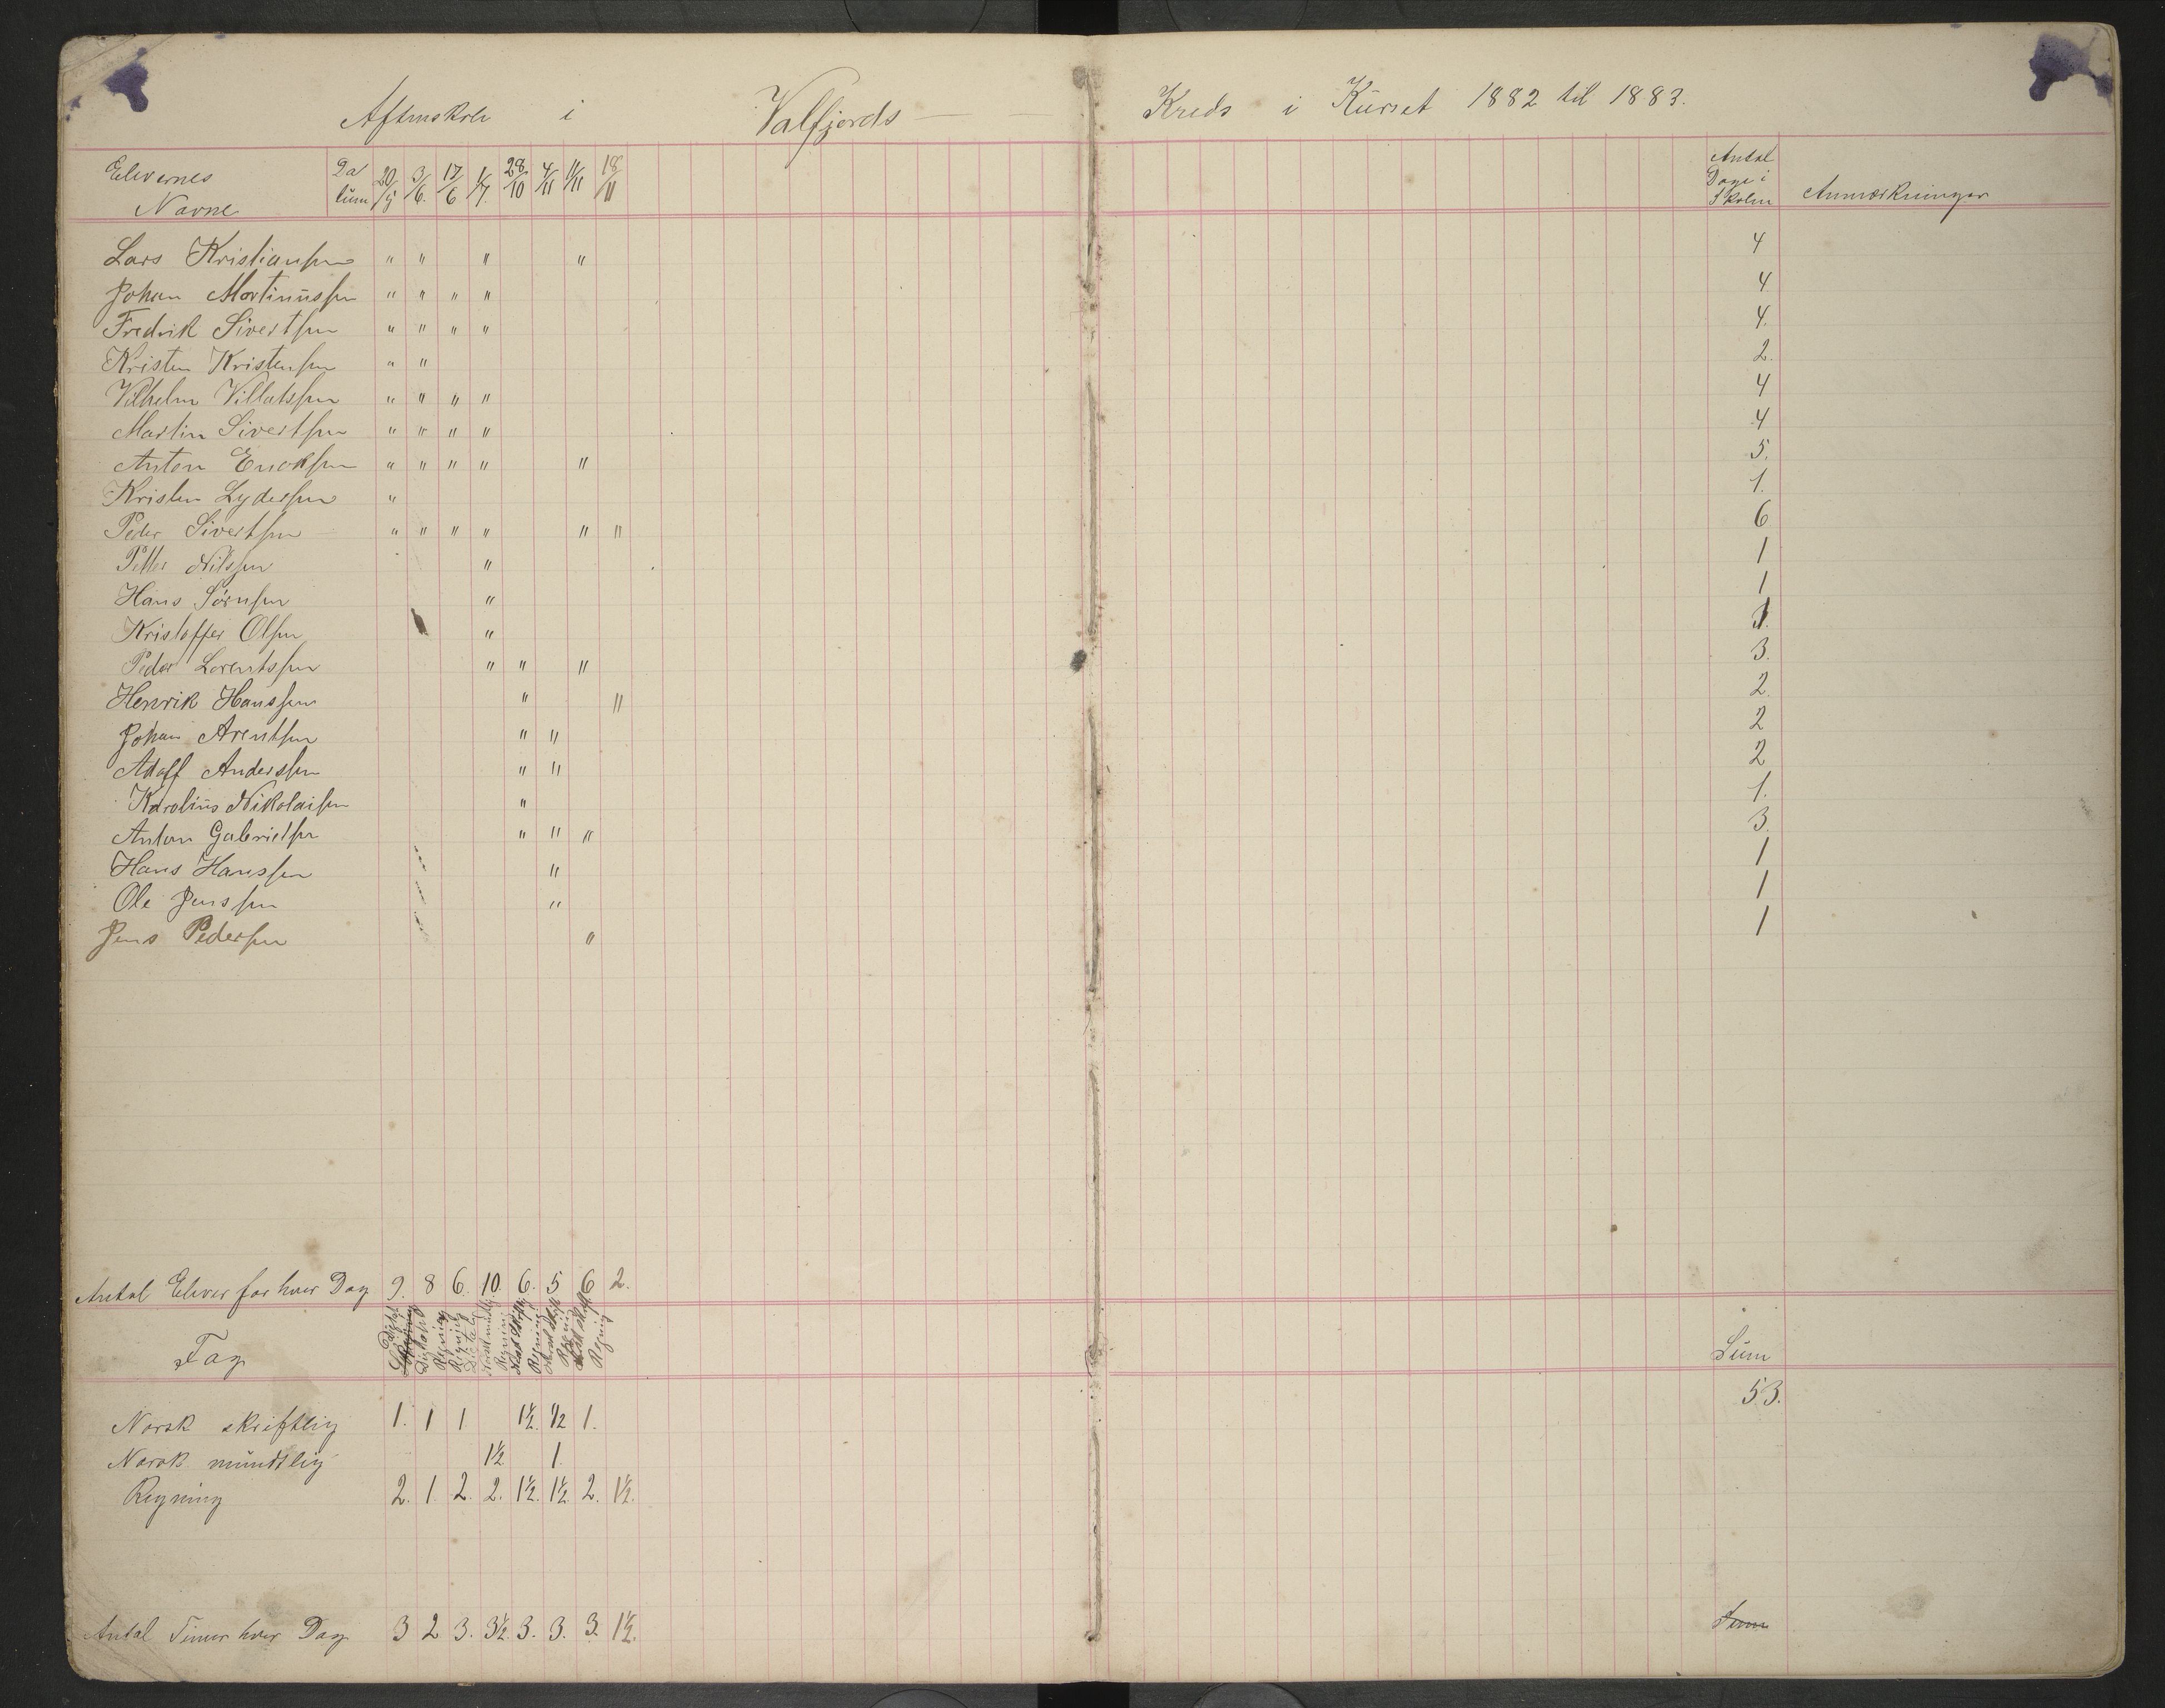 Aftenskole i Valfjords Kreds i Kurset 1882 til 1883.
Elevernes Navne Datum 20/5 3/6. 17/6 1/7. 28/10 4/11 11/11 18/11 Antal Dage i Skolen Anmærkninger
Lars Kristiansen " " " " 4
Johan Martinussen " " " " 4
Fredrik Sivertsen " " " " 4.
Kristen Kristensen " " 2.
Vilhelm Villatssen " " " " 4
Martin Sivertsen " " " " 4
Anton Enoksen " " " " " 5.
Kristen Lydersen " 1.
Peder Sivertsen " " " " " " 6
Petter Nilssen " 1
Hans Sørnsen " 1
Kristoffer Olsen " 1.
Peder Lorentssen " " " 3.
Henrik Hanssen " " 2.
Johan Arentsen " " 2
Adolf Anderssen " " 2
Karolius Nikolaisen " 1.
Anton Gabrielsen " " " 3.
Hans Hanssen " 1
Ole Jenssen " 1
Jens Pedersen " 1
Antal Elever for hver Dag 9. 8 6. 10. 6. 5 6 2.
Fag Regning Sum
53.
Norsk skriftlig 1. 1 1 1½. ½ 1.
Norsk mundtlig 1½ 1.
Regning 2. 1. 2. 2. 1½. 1½ 2. 1½.
Antal Timer hver Dag 3 2 3. 3½. 3. 3. 3. 1½. Sum